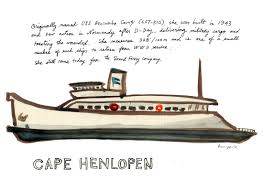 Originally named USS Buncombe County (LST-510), she was built in 1943
and saw action in Normandy after D-Day, delivering military cargo and
treating the wounded. She measures 328' long and is one of a small
number of such ships to return from WW2 service.
She still comes today for the Sound Ferry company.
CAPE HENLOPEN